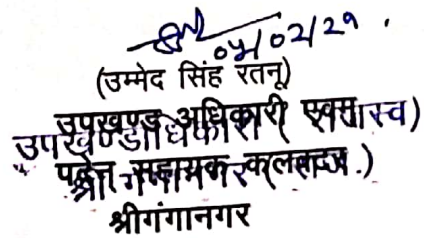 04/02/29.
(उम्मेद सिंह रतनू)
उपखण्ड अधिकारी एवम्
उपखण्डाधिकारी (राजस्व)
पदेन सहायक कलक्टर
श्री गंगानगर (राज.)
श्रीगंगानगर